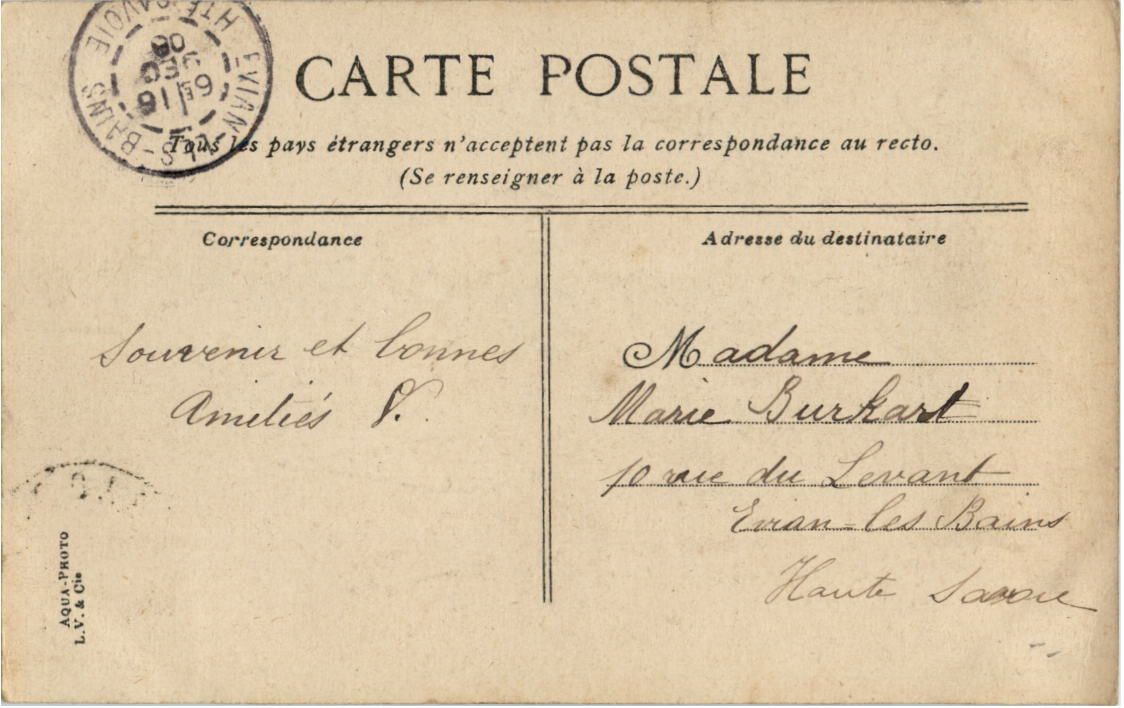 EVIAN-LES-BAINS
HTE SAVOIE
CARTE POSTALE
Tous les pays étrangers n'acceptent pas la correspondance au recto.
(Se renseigner à la poste.)
Correspondance
Souvenir et bonnes
Amitiés V.
Adresse du destinataire
Madame
Marie Burkart
10 rue du Levant
Evian-les Bains
Haute Savoie
AQUA-PHOTO
L.V. & Cie